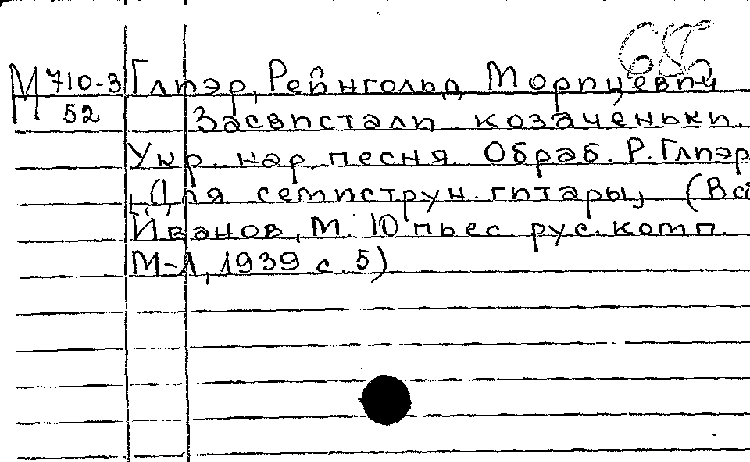 68
М 710-3 Глиэр, Рейнгольд Морицевич
52 Засвистали козаченьки.
Укр. нар. песня. Обраб. Р. Глиэр
Для семиструн. гитары, (В сб
Иванов, М. 10 пьес рус. комп.
М-Л, 1939 с. 5)